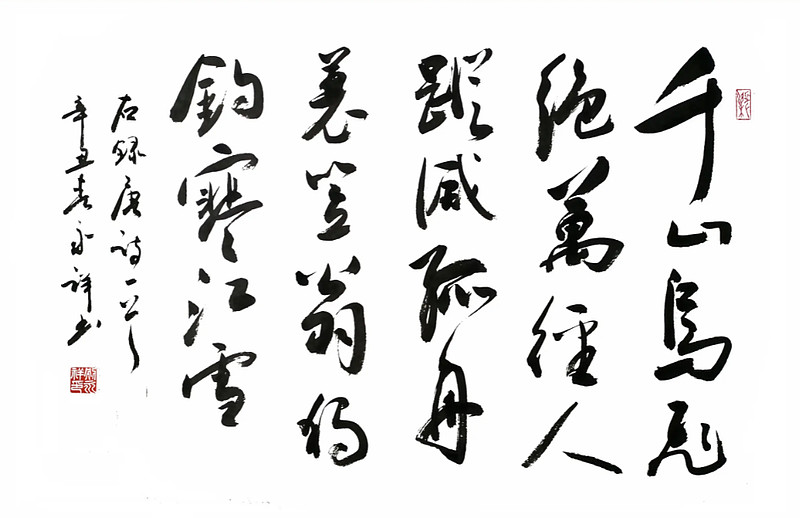 千山鳥飛
絶萬徑人
蹤滅孤舟
蓑笠翁独
釣寒江雪
右録唐詩一首
辛丑春永祥书